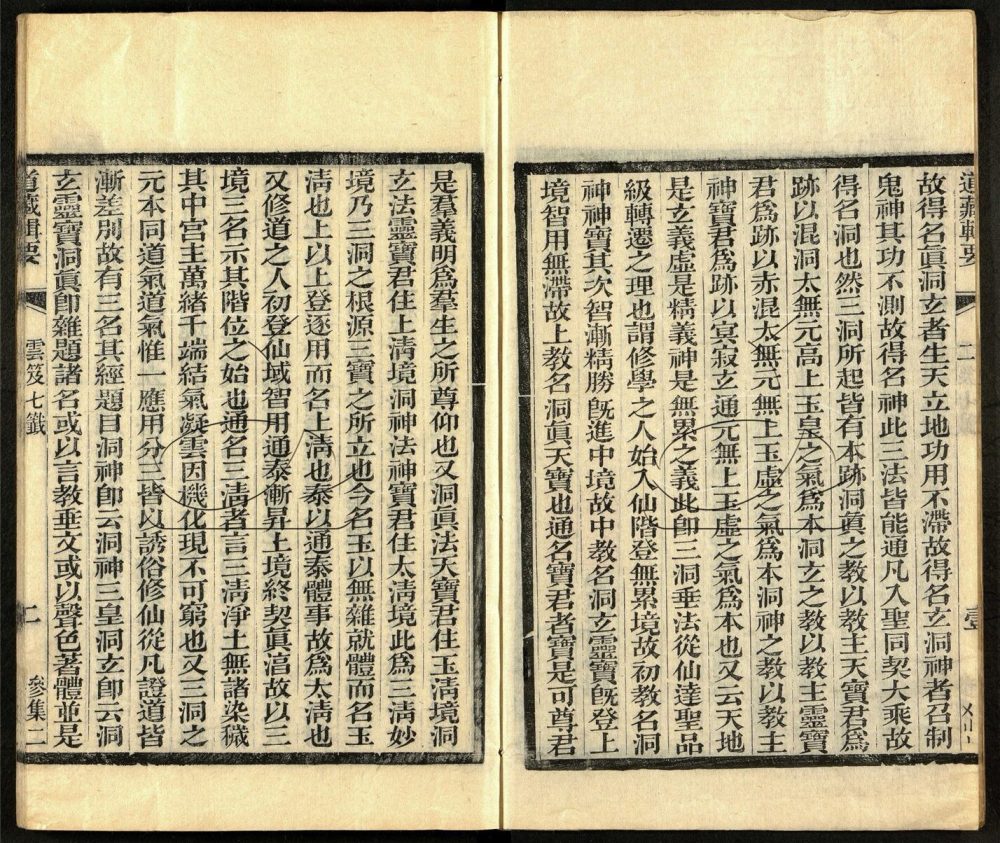 道藏輯要
二
壹
故得名眞洞玄者生天立地功用不滯故得名玄洞神者召制
鬼神其功不測故得名神此三法皆能通凡入聖同契大乘故
得名洞也然三洞所起皆有本跡洞眞之教以教主天寶君爲
跡以混洞太無元高上玉皇之氣爲本洞玄之教以教主靈寶
君爲跡以赤混太無元無上玉虛之氣爲本洞神之教以教主
神寶君爲跡以冥寂玄通元無上玉虛之氣爲本也又云天地
是玄義虛是精義神是無累之義此卽三洞垂法從仙達聖品
級轉遷之理也謂修學之人始入仙階登無累境故初教名洞
神神寶其次智漸精勝旣進中境故中教名洞玄靈寶旣登上
境智用無滯故上教名洞眞天寶也通名寶君者寶是可尊君
是羣義明爲羣生之所尊仰也又洞眞法天寶君住玉淸境洞
玄法靈寶君住上淸境洞神法神寶君住太淸境此爲三淸妙
境乃三洞之根源三寶之所立也今名玉以無雜就體而名玉
淸也上以上登逐用而名上淸也泰以通泰體事故爲太淸也
又修道之人初登仙域智用通泰漸昇上境終契眞淸故以三
境三名示其階位之始也通名三淸者言三淸淨土無諸染穢
其中宮主萬緒千端結氣凝雲因機化現不可窮也又三洞之
元本同道氣道氣惟一應用分三皆以誘俗修仙從凡證道皆
漸差別故有三名其經題目洞神卽云洞神三皇洞玄卽云洞
玄靈寶洞眞卽雜題諸名或以言教垂文或以聲色著體並是
道藏輯要
雲笈七籤
二
參集二